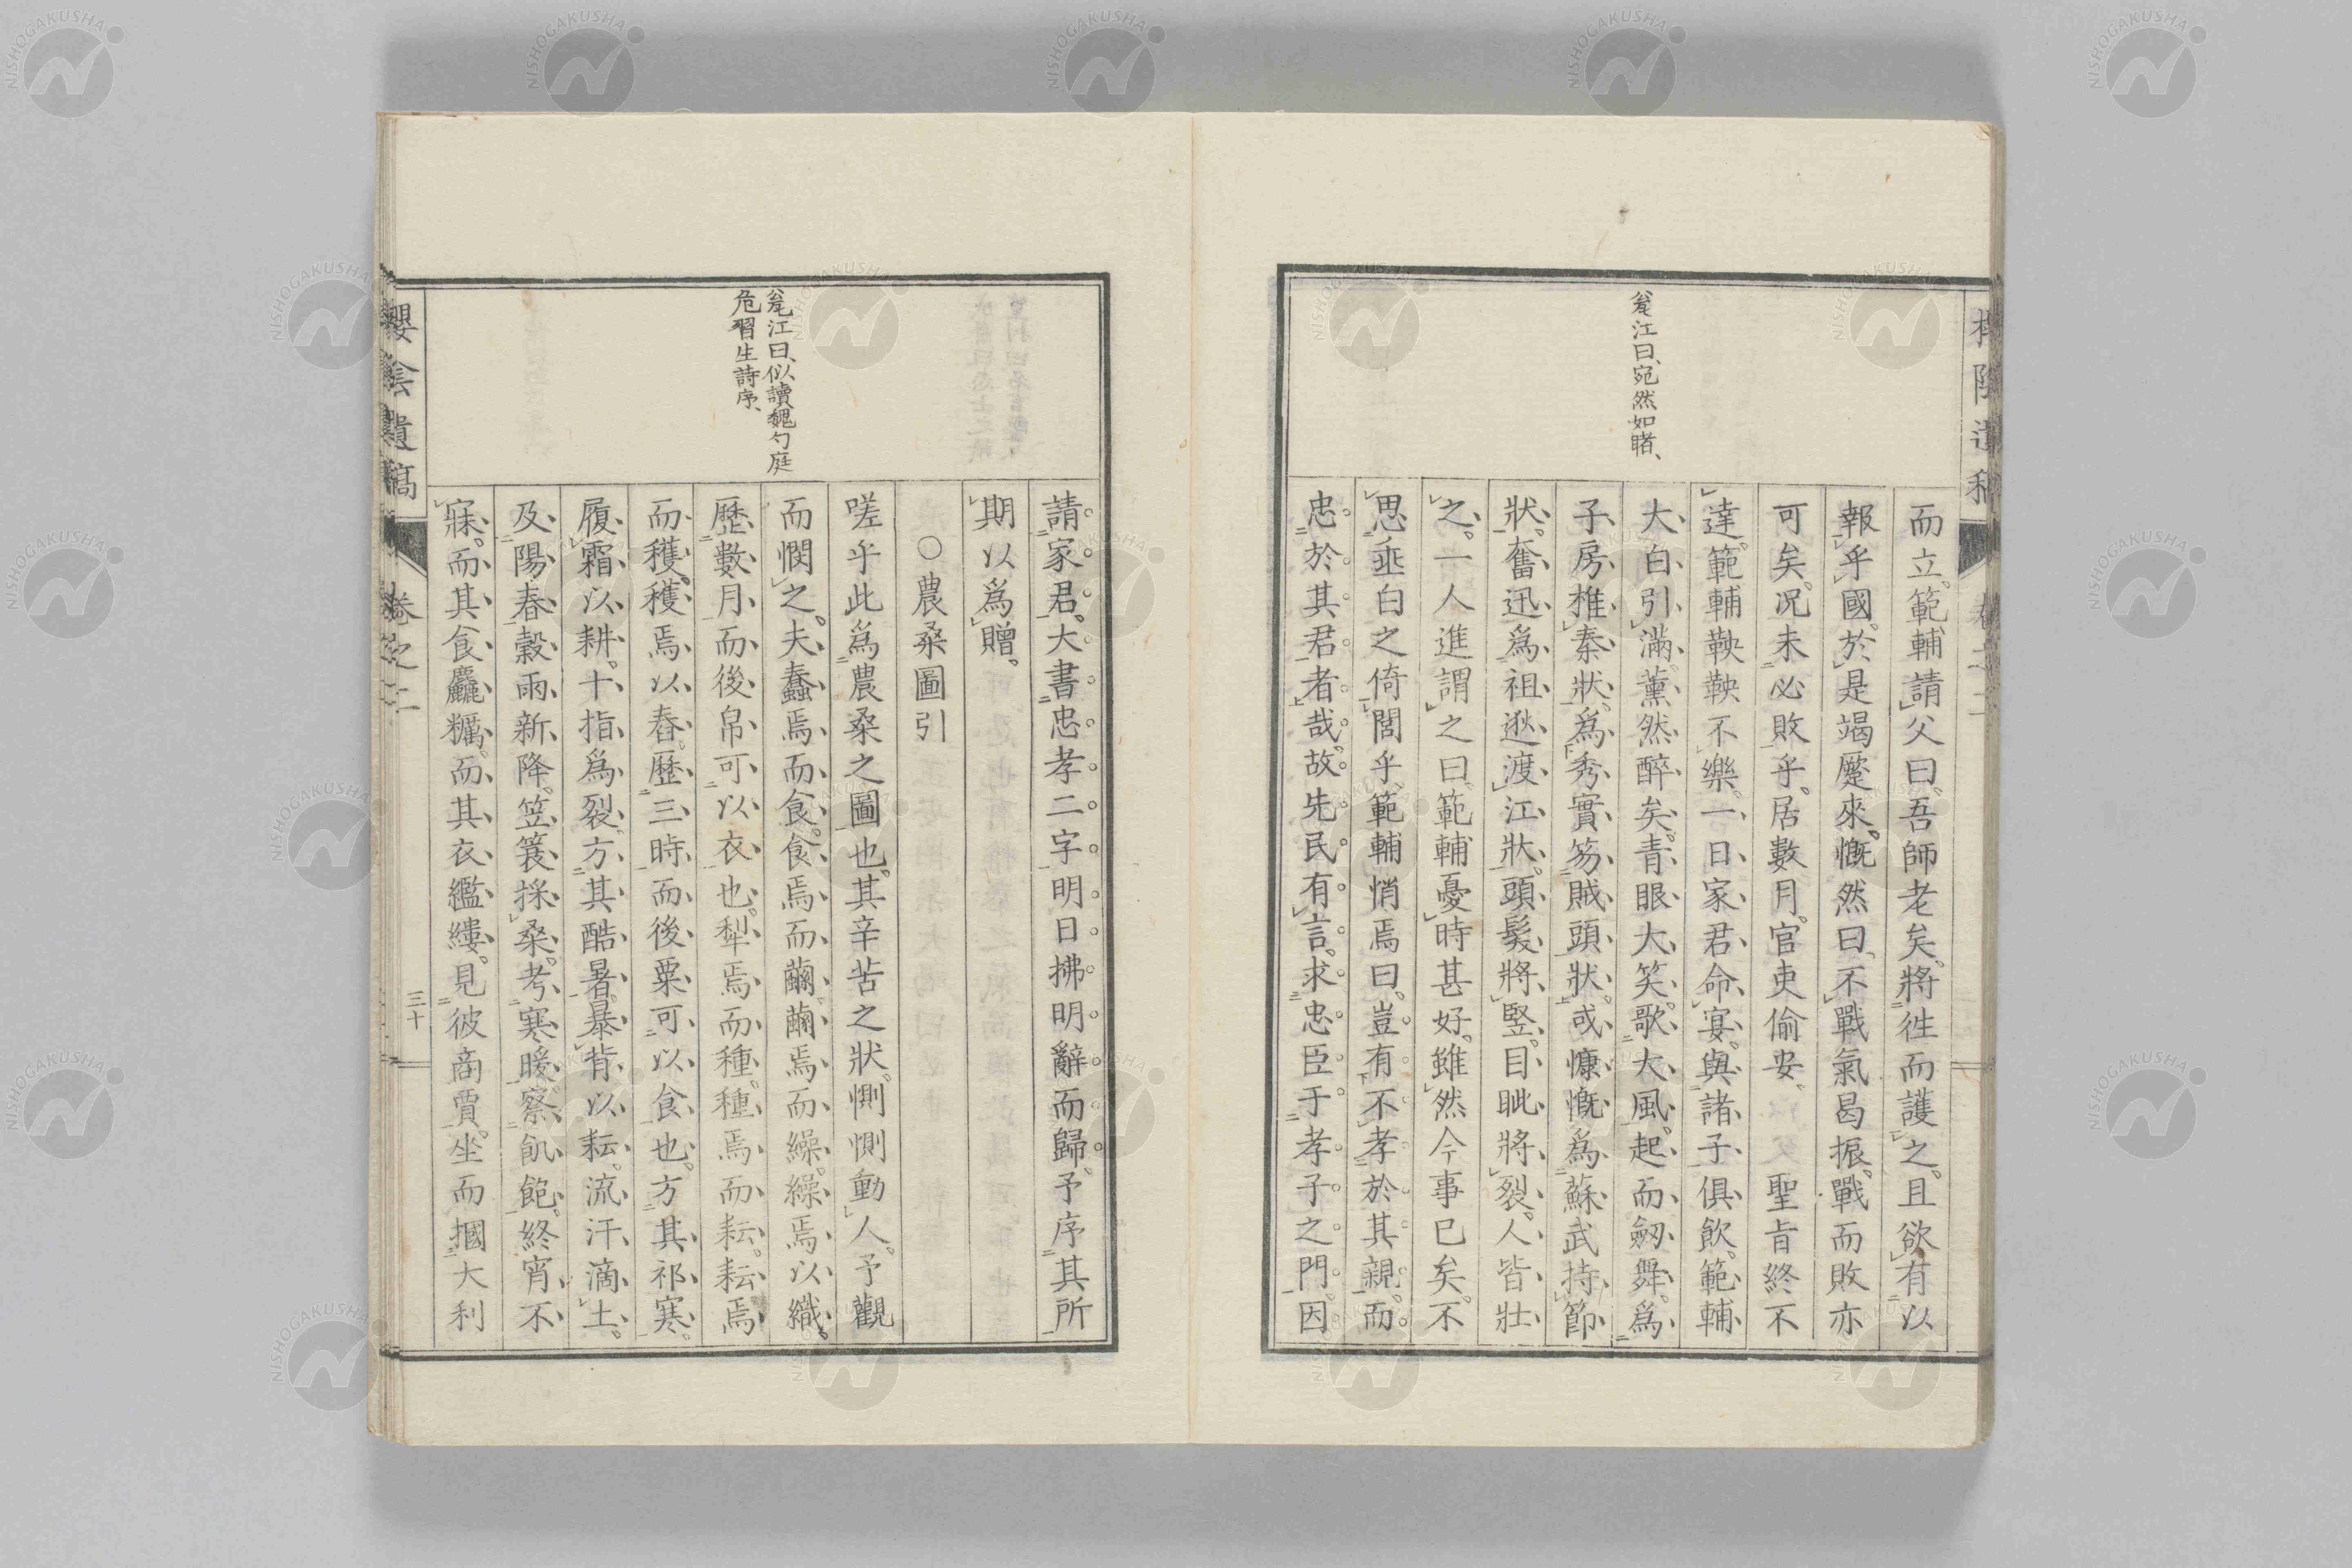 毿江曰、宛然如睹、
而立。範輔請父曰。吾師老矣。將徃而護之。且欲有以
報乎國。於是竭蹷來。慨然曰。不戰氣曷振。戰而敗亦
可矣。况未必敗乎。居數月。官吏偷安。聖旨終不
達。範輔鞅鞅不樂。一日家君命宴。與諸子俱飲。範輔
大白引滿。薰然醉矣。青眼大笑。歌大風。起而劔舞。爲
子房椎秦狀。爲秀實笏賊頭狀。或慷慨爲蘇武持節
狀。奮迅爲祖逖渡江狀。頭髮將竪。目眦將裂。人皆壯
之。一人進謂之曰。範輔憂時甚好。雖然今事已矣。不
思亟白之倚閭乎。範輔悄焉曰。豈有不孝於其親。而
忠於其君者哉。故先民有言。求忠臣于孝子之門。因
請家君。大書忠孝二字。明日拂明辭而歸。予序其所
期以爲贈。
○農桑圖引
毿江曰、似讀魏勺庭
危習生詩序、
嗟乎此爲農桑之圖也。其辛苦之狀。惻惻動人。予觀
而憫之。夫蠶焉而食。食焉而繭。繭焉而繰。繰焉以織。
歷數月而後帛可以衣也。犁焉而種。種焉而耘。耘焉
而穫。穫焉以舂。歷三時而後粟可以食也。方其祁寒。
履霜以耕。十指爲裂。方其酷暑。暴背以耘。流汗滴土。
及陽春穀雨新降。笠簑採桑。考寒暖。察飢飽。終宵不
寐。而其食麤糲。而其衣繿縷。見彼商賈。坐而摑大利
櫻陰遺稿
卷之二
三十